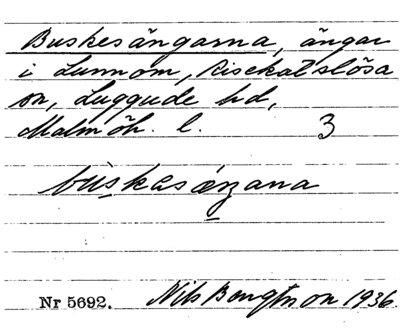 Buskesängarna, ängar
i Lunnom, Risekatslösa
sn, Luggude hd,
Malmöh. l. 3
Nr 5692. Nils Bengtsson 1936.